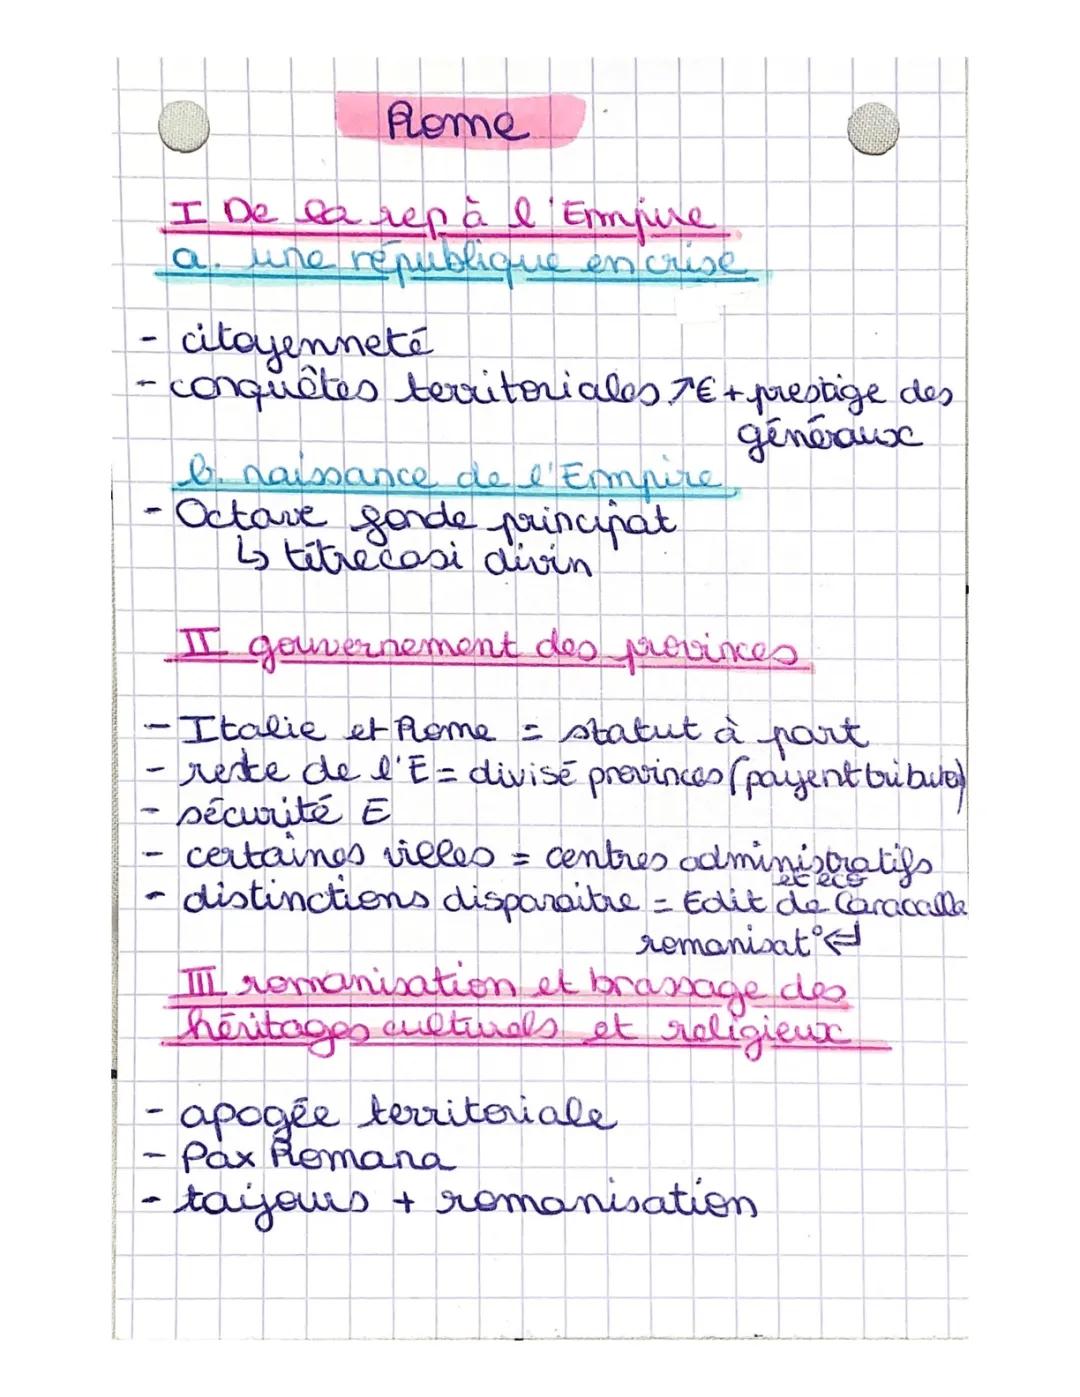 Rome
I De la rep à l'Empire
a. une république en crise
- citoyenneté
- conquêtes territoriales ↗€ + prestige des
généraux
b. naissance de l'Empire
- Octave fonde principat
↳ titre casi divin
II gouvernement des provinces
- Italie et Rome = statut à part
- reste de l'E = divisé provinces (payent tributes)
- sécurité E
- certaines villes = centres administratifs
et éco
- distinctions disparaitre = Edit de Caracalla
romanisat° ↵
III romanisation et brassage des
héritages culturels et religieux
- apogée territoriale
- Pax Romana
- toujours + romanisation